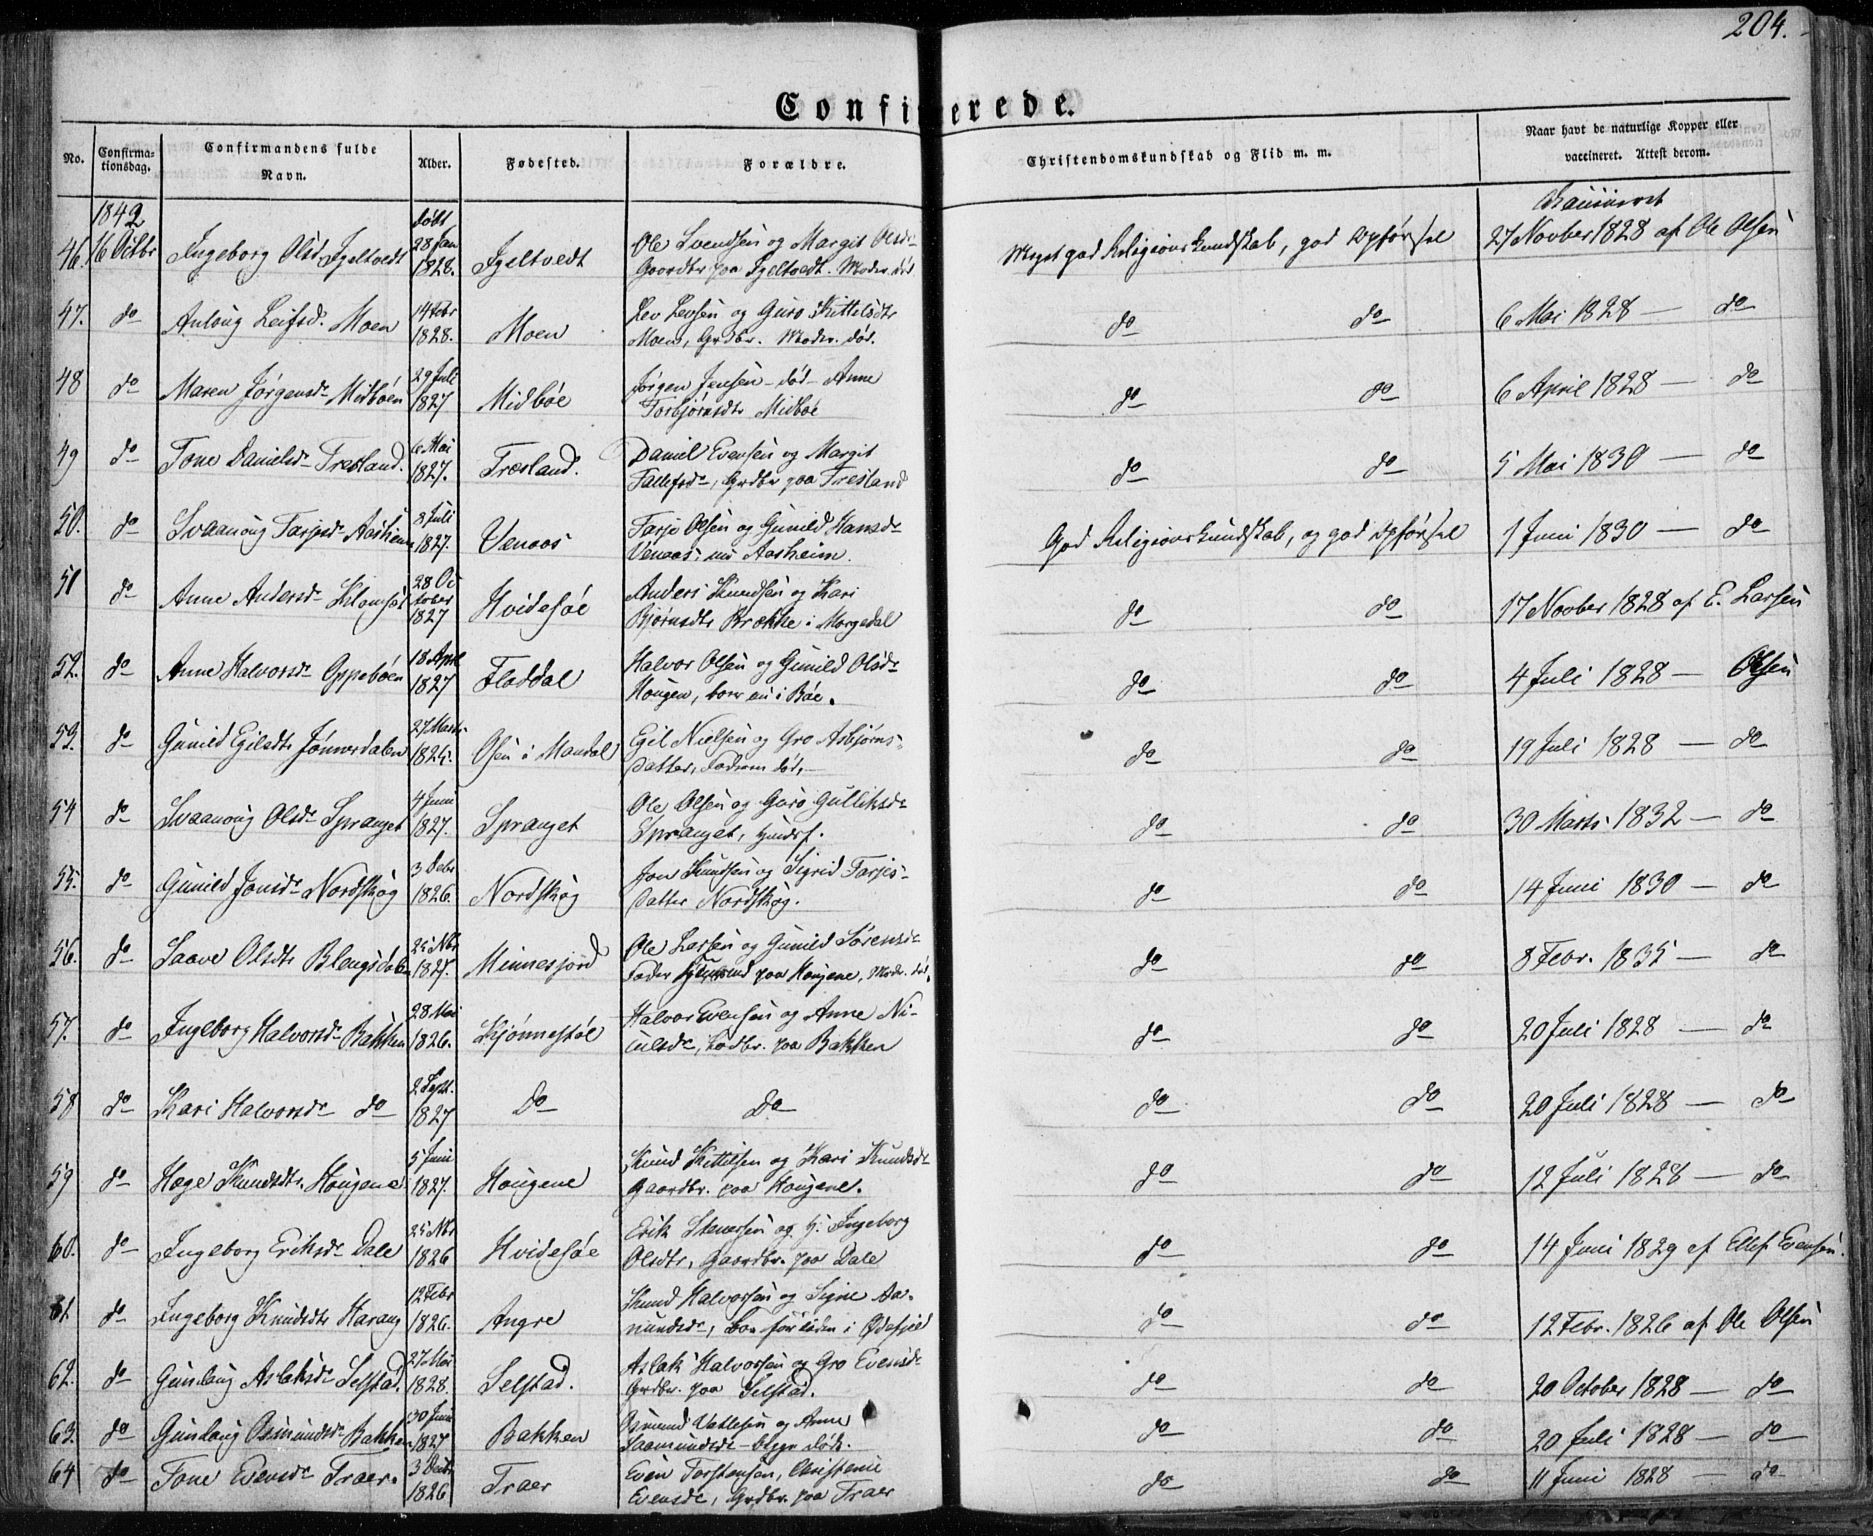 204.
Confirmerede.
No.
Confirma-
tionsdag.
Confirmandens fulde
Navn.
Alder.
Fødested.
Forældre.
Christendomskundskab og Flid m. m.
Naar havt de naturlige Kopper eller
vaccineret. Attest derom.
1842
født
Vaccineret
46. 16 Octbr Ingeborg Olsd. Igeltvedt 28 Jan 1828. Igeltvedt Ole Svendsen og Margit Olsdr
Gaardbr paa Igeltvedt. Moder. død. Meget god Religionskundskab, god Opførsel 27 Novber 1828 af Ole Olsen
47. do Anlaug Leifsd. Moen 14 Febr 1828. Moen Lev Levsen og Guro Kittelsdtr
Moen, Grdbr. Moder. død. do do 6 Mai 1828 — do
48 do Maren Jørgensdr Midbøen 29 Juli 1827 Midbøe Jørgen Jensen - død - Anne
Torbjørnsdtr Midbøe do do 6 April 1828 — do
49 do Tone Danielsdr Træsland. 6 Mai 1827. Træsland. Daniel Evensen og Margit
Tallefsdr, Grdbr paa Træsland do do 5 Mai 1830 — do
50. do Svaanoug Tarjesdr Aasheim 8 Juli 1827. Venaas Tarje Olsen og Gunild Hansdr
Venaas, nu Aasheim. God Religionskundskab, og god Opførsel 1 Juni 1830 — do
51 do Anne Andersdr 28 October 1827 Hvidesøe Anders Knudsen og Kari
Bjørnsdtr Brække i Morgedal do do 17 Novber 1828 af E. Larsen
52. do Anne Halvorsdr Oppebøen 18 April 1827 Floddal Halvor Olsen og Gunild Olsdr
Hougen, boer nu i Bøe. do do 4 Juli 1828 — Olsen
53. do Gunild Egilsdtr 27 Marts 1825. Osen i Mandal Egil Nielsen og Gro Asbjørns-
datter, Faderen død, do do 19 Juli 1828 — do
54 do Svaanoug Olsdr Spranget 4 Juni 1827. Spranget Ole Olsen og Guro Gulliksdr
Spranget, Huusf. do do 30 Marts 1832 — do
55. do Gunild Jonsdr Nordskog 3 Decbr 1826. Nordskog Jon Knudsen og Sigrid Tarjes-
datter Nordskog. do do 14 Juni 1830 — do
56. do Saave Olsdtr Blengsdalen 25 Nbr 1827. Minnesjord Ole Larsen og Gunild Sørensdr
Fader paa Hougene, Modr. død. do do 8 Febr. 1835 — do
57. do Ingeborg Halvorsdr Bakken 28 Mai 1826. Kjønnestøl Halvor Evensen og Anne Ni-
culsdr, Gaardbr. paa Bakken do do 20 Juli 1828 — do
58 do Kari Halvorsdr do 2 Sept. 1827 do do do do 20 Juli 1828 — do
59 do Hæge Knudsdtr. Hougene 5 Juni 1827. Hougene Knud Kittelsen og Kari Knudsdr
Gaardbr. paa Hougene. do do 12 Juli 1828 — do
60. do Ingeborg Eriksdr Dale 25 Nbr 1826 Hvidesøe Erik Steensen og H. Ingeborg
Olsdtr, Gaardbr. paa Dale do do 14 Juni 1829 af Ellef Evensen.
61. do Ingeborg Knudsdtr Haraug 12 Febr 1826. Angre Knud Halvorsen og Signe Aa-
mundsdr, do do 12 Febr. 1826 af Ole Olsen
62. do Gunlaug Aslaksdr Selstad. 27 Mai 1828. Selstad. Aslak Halvorsen og Gro Evensdr
Grdbr. paa Selstad. do do 20 October 1828 — do
63. do Gunlaug Osmundsdr Bakken 30 Juni 1827 Bakken Osmund Vetlesen og Anne
Saamundsdr begge døde. do do 20 Juli 1828 — do
64 do Tone Evensdr Traer. 3 Decbr 1826 Traer Even Torstensen, Christense
Evensdr, Grdbr. paa Traer do do 11 Juni 1828 — do